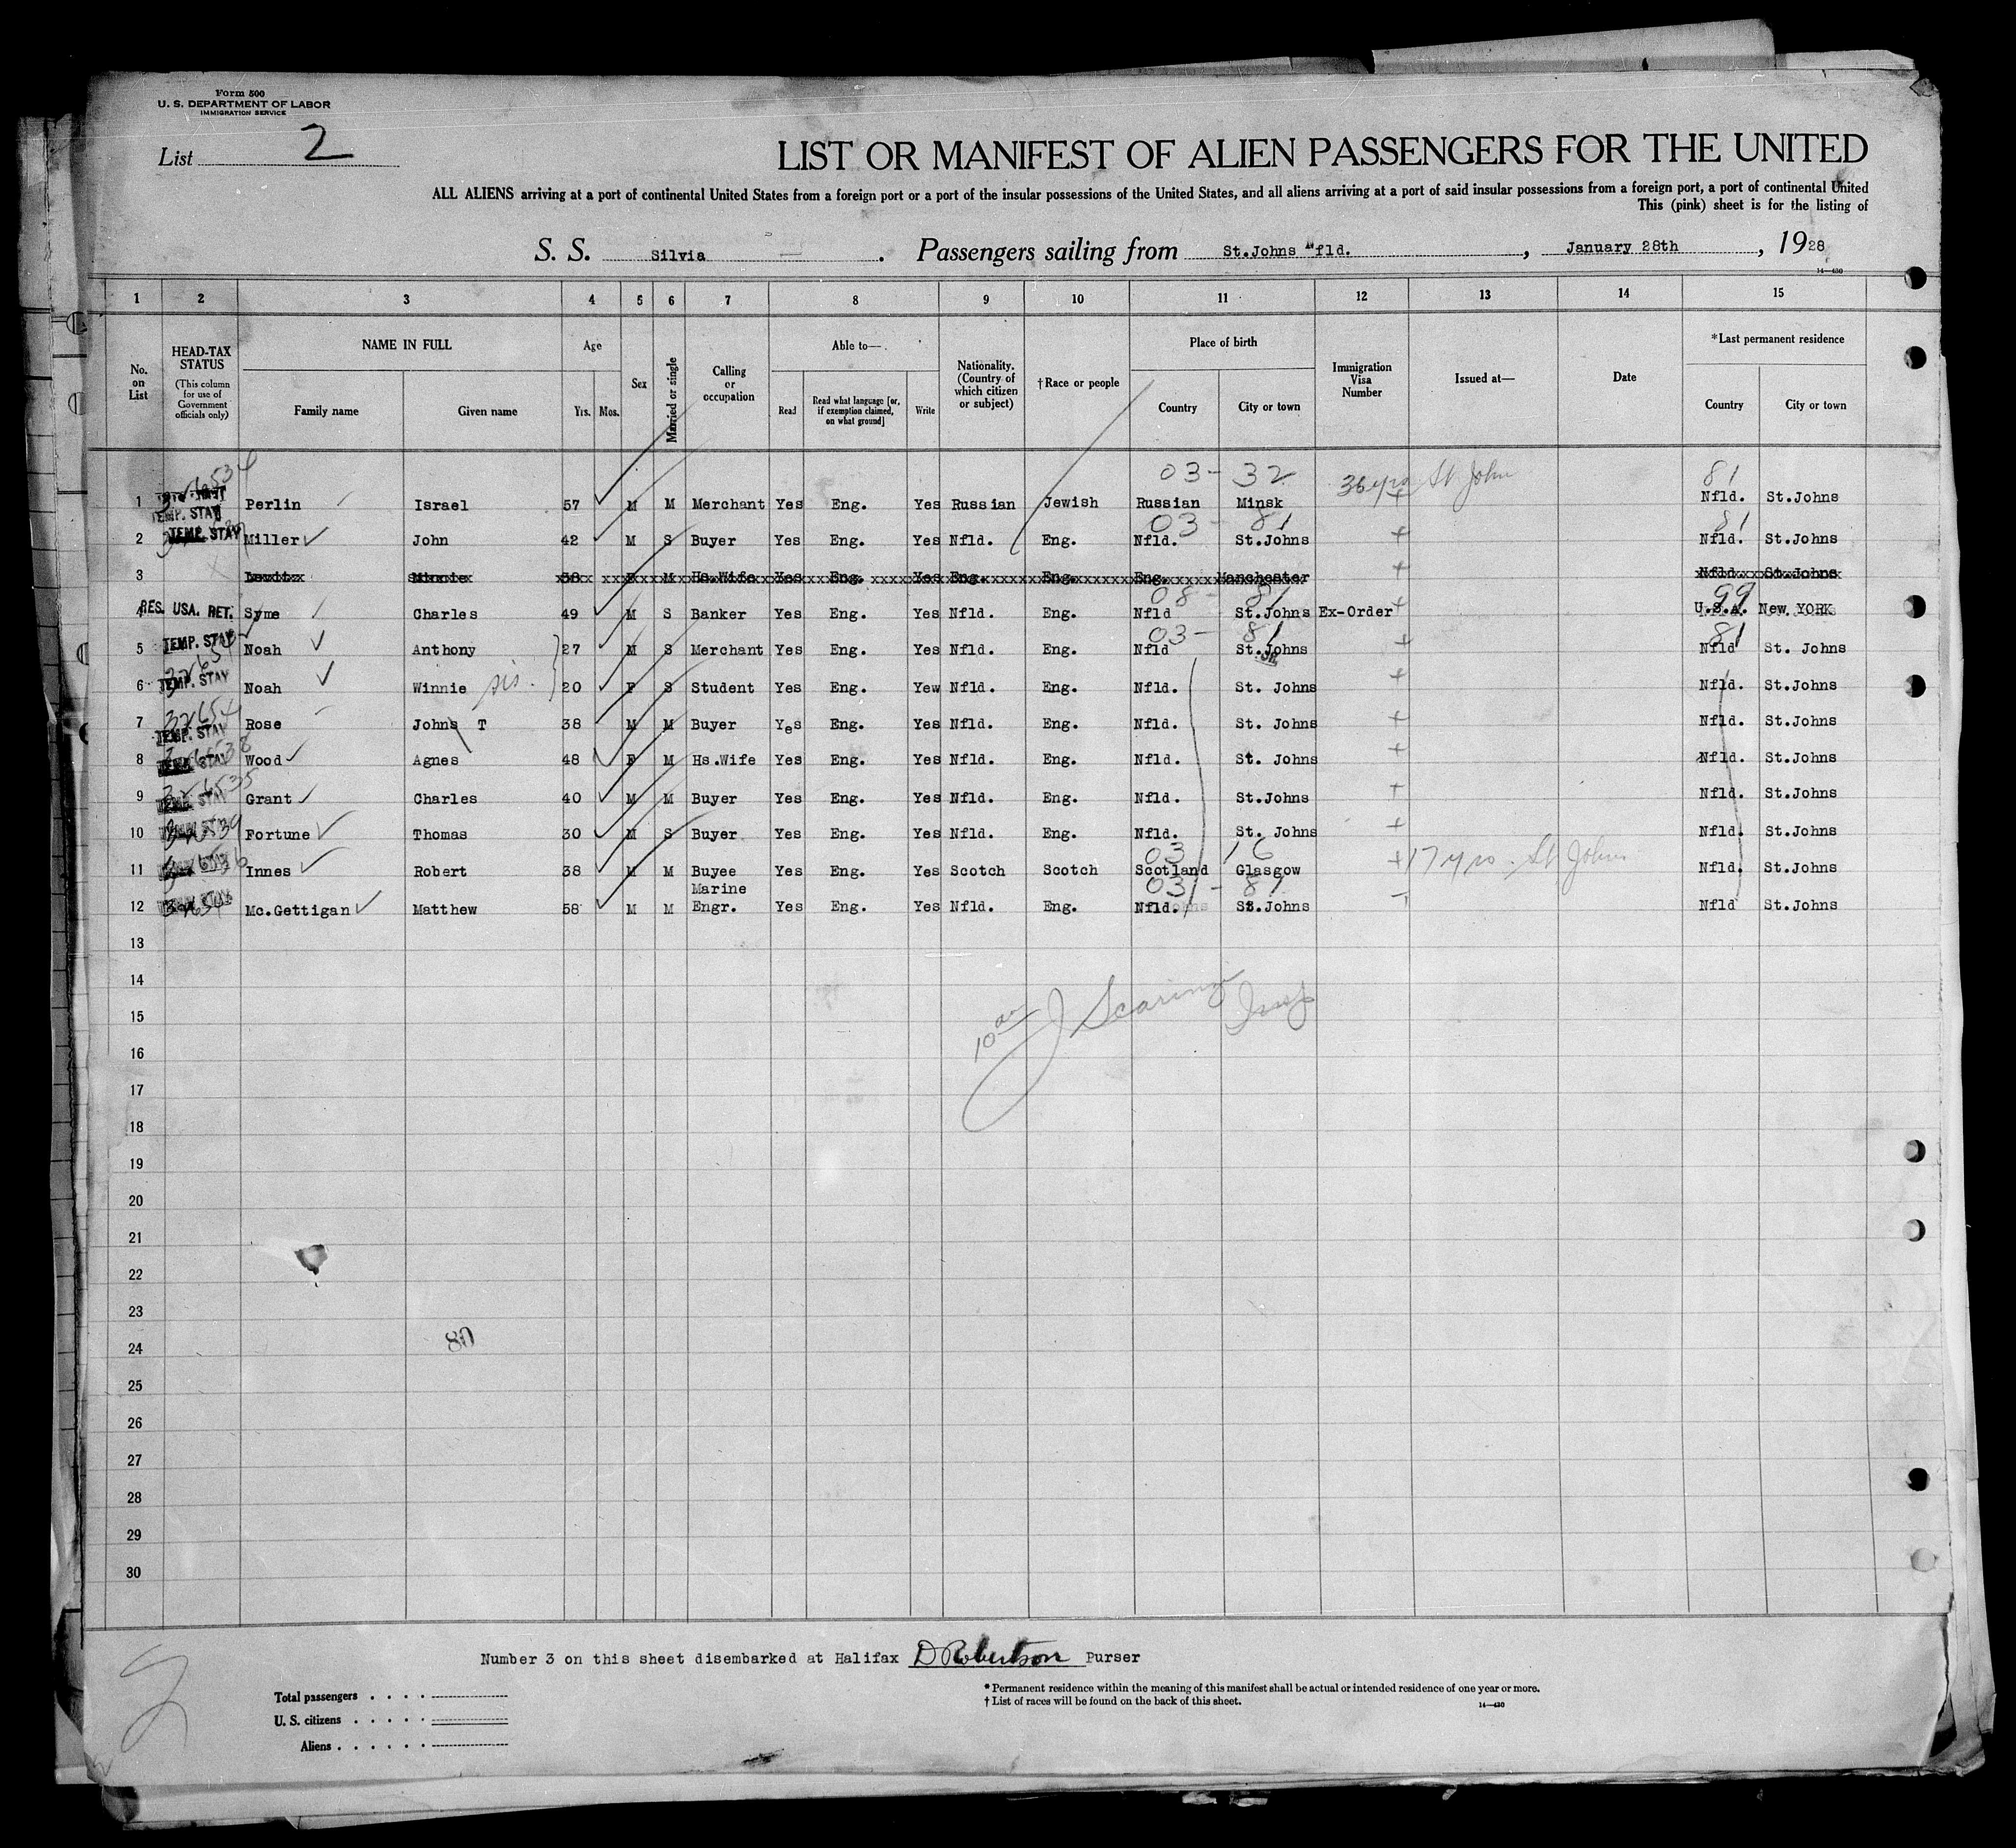 Form 500
U. S. DEPARTMENT OF LABOR
IMMIGRATION SERVICE
List 2
LIST OR MANIFEST OF ALIEN PASSENGERS FOR THE UNITED
ALL ALIENS arriving at a port of continental United States from a foreign port or a port of the insular possessions of the United States, and all aliens arriving at a port of said insular possessions from a foreign port, a port of continental United
This (pink) sheet is for the listing of
S. S. Silvia . Passengers sailing from St.Johns Nfld. , January 28th , 1928
14—430
1 2 3 4 5 6 7 8 9 10 11 12 13 14 15
No. on List
HEAD-TAX STATUS (This column for use of Government officials only)
NAME IN FULL
Family name
Given name
Age
Yrs. Mos.
Sex
Married or single
Calling or occupation
Able to—
Read
Read what language [or, if exemption claimed, on what ground]
Write
Nationality. (Country of which citizen or subject)
†Race or people
Place of birth
Country
City or town
Immigration Visa Number
Issued at—
Date
*Last permanent residence
Country
City or town
03- 32 36 yrs St John 81
1 TEMP. STAY Perlin Israel 57 M M Merchant Yes Eng. Yes Russian Jewish Russian Minsk + Nfld. St.Johns
03 - 81 81
2 TEMP. STAY Miller John 42 M S Buyer Yes Eng. Yes Nfld. Eng. Nfld. St.Johns + Nfld. St.Johns
3 Minnie 38 F M Hs.Wife Yes Eng. Yes Eng. Eng. Eng. Manchester + Nfld. St.Johns
08- 81 99
4 RES. USA. RET. Syme Charles 49 M S Banker Yes Eng. Yes Nfld. Eng. Nfld St.Johns Ex-Order + U.S.A. New YORK
03- 81 81
5 TEMP. STAY Noah Anthony 27 M S Merchant Yes Eng. Yes Nfld. Eng. Nfld St.Johns + Nfld St. Johns
6 TEMP. STAY Noah Winnie sis. 20 F S Student Yes Eng. Yew Nfld. Eng. Nfld. St. Johns + Nfld. St.Johns
7 TEMP. STAY Rose Johns T 38 M M Buyer Yes Eng. Yes Nfld. Eng. Nfld. St. Johns + Nfld. St.Johns
8 TEMP. STAY Wood Agnes 48 F M Hs.Wife Yes Eng. Yes Nfld. Eng. Nfld. St. Johns + Nfld. St.Johns
9 TEMP. STAY Grant Charles 40 M M Buyer Yes Eng. Yes Nfld. Eng. Nfld. St.Johns + Nfld. St.Johns
10 Fortune Thomas 30 M S Buyer Yes Eng. Yes Nfld. Eng. Nfld. St. Johns + Nfld. St.Johns
03 16
11 Innes Robert 38 M M Buyee Yes Eng. Yes Scotch Scotch Scotland Glasgow + 17 yrs. St Johns Nfld. St.Johns
03 - 81
12 Mc.Gettigan Matthew 58 M M Marine Engr. Yes Eng. Yes Nfld. Eng. Nfld. St.Johns Nfld St.Johns
13
14
15
10 am J Scaringi Insp
16
17
18
19
20
21
22
23
24
80
25
26
27
28
29
30
Number 3 on this sheet disembarked at Halifax D Robertson Purser
Total passengers . . . .
U. S. citizens . . . . .
Aliens . . . . . .
* Permanent residence within the meaning of this manifest shall be actual or intended residence of one year or more.
† List of races will be found on the back of this sheet.
14—430